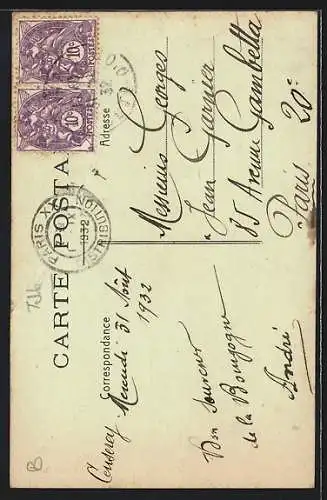 CARTE POSTALE
Correspondance
Adresse
10c
POSTES
10c
POSTES
PARIS XX
DISTRIBUTION
1932
Censerey
Mercredi 31 Août
1932
Bon souvenir
de la Bourgogne
André
Messieurs Georges
& Jean Garnier
85 Avenue Gambetta
Paris 20e
B